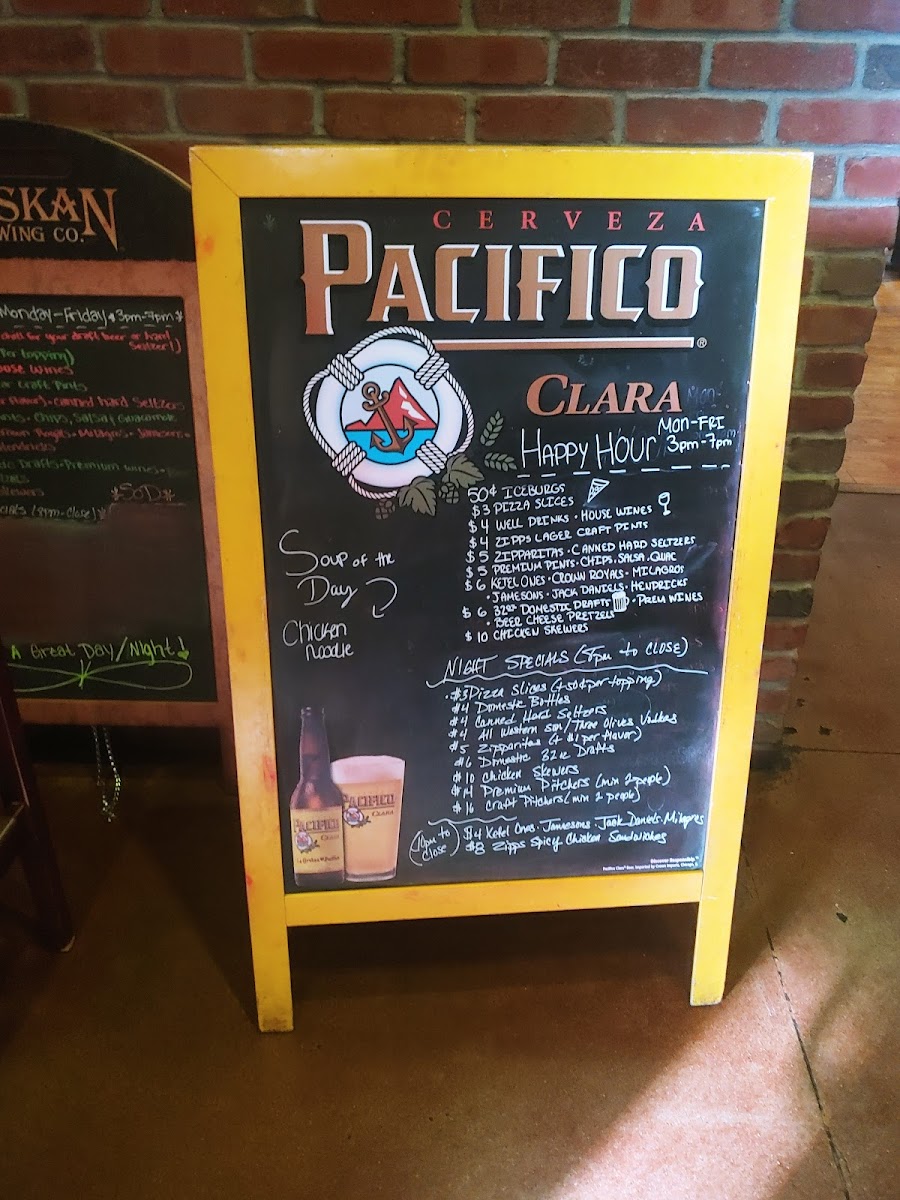 SKAN
WING CO.
Monday-Friday 3pm-7pm
for your draft beer or hard
Seltzer!)
Per topping)
House wines
Craft Pints
Canned hard Seltzers
Chips, Salsa & Guacamole
Crown Royals - Milagros - Jamesons
Hendricks
Drafts - Premium wines
Skewers
SOD
(9pm-Close)
A Great Day/Night!
CERVEZA
PACIFICO
®
CLARA
Mon-
HAPPY HOUR MON-FRI
3pm-7pm
50¢ ICEBURGS
$3 PIZZA SLICES
$4 WELL DRINKS · HOUSE WINES
$4 ZIPPS LAGER CRAFT PINTS
$5 ZIPPARITAS · CANNED HARD SELTZERS
$5 PREMIUM PINTS · CHIPS, SALSA, GUAC
$6 KETEL ONES · CROWN ROYALS · MILAGROS
· JAMESONS · JACK DANIELS · HENDRICKS
$6 32oz DOMESTIC DRAFTS · PREM WINES
· BEER CHEESE PRETZELS
$10 CHICKEN SKEWERS
Soup of the
Day
Chicken
Noodle
NIGHT SPECIALS (9pm to CLOSE)
· $3 Pizza Slices (+50¢ per topping)
$4 Domestic Bottles
$4 Canned Hard Seltzers
$4 All Western Son/Three Olives Vodkas
$5 Zipparitas (+ $1 per flavor)
$6 Domestic 32oz Drafts
$10 Chicken Skewers
$14 Premium Pitchers (min 2 people)
$16 Craft Pitchers (min 2 people)
10pm to
Close
$4 Ketel Ones · Jamesons · Jack Daniels · Milagros
$8 Zipps Spicy Chicken Sandwiches
PACIFICO
CLARA
PACIFICO
CLARA
Discover Responsibly.™
Pacifico Clara® Beer. Imported by Crown Imports, Chicago, IL